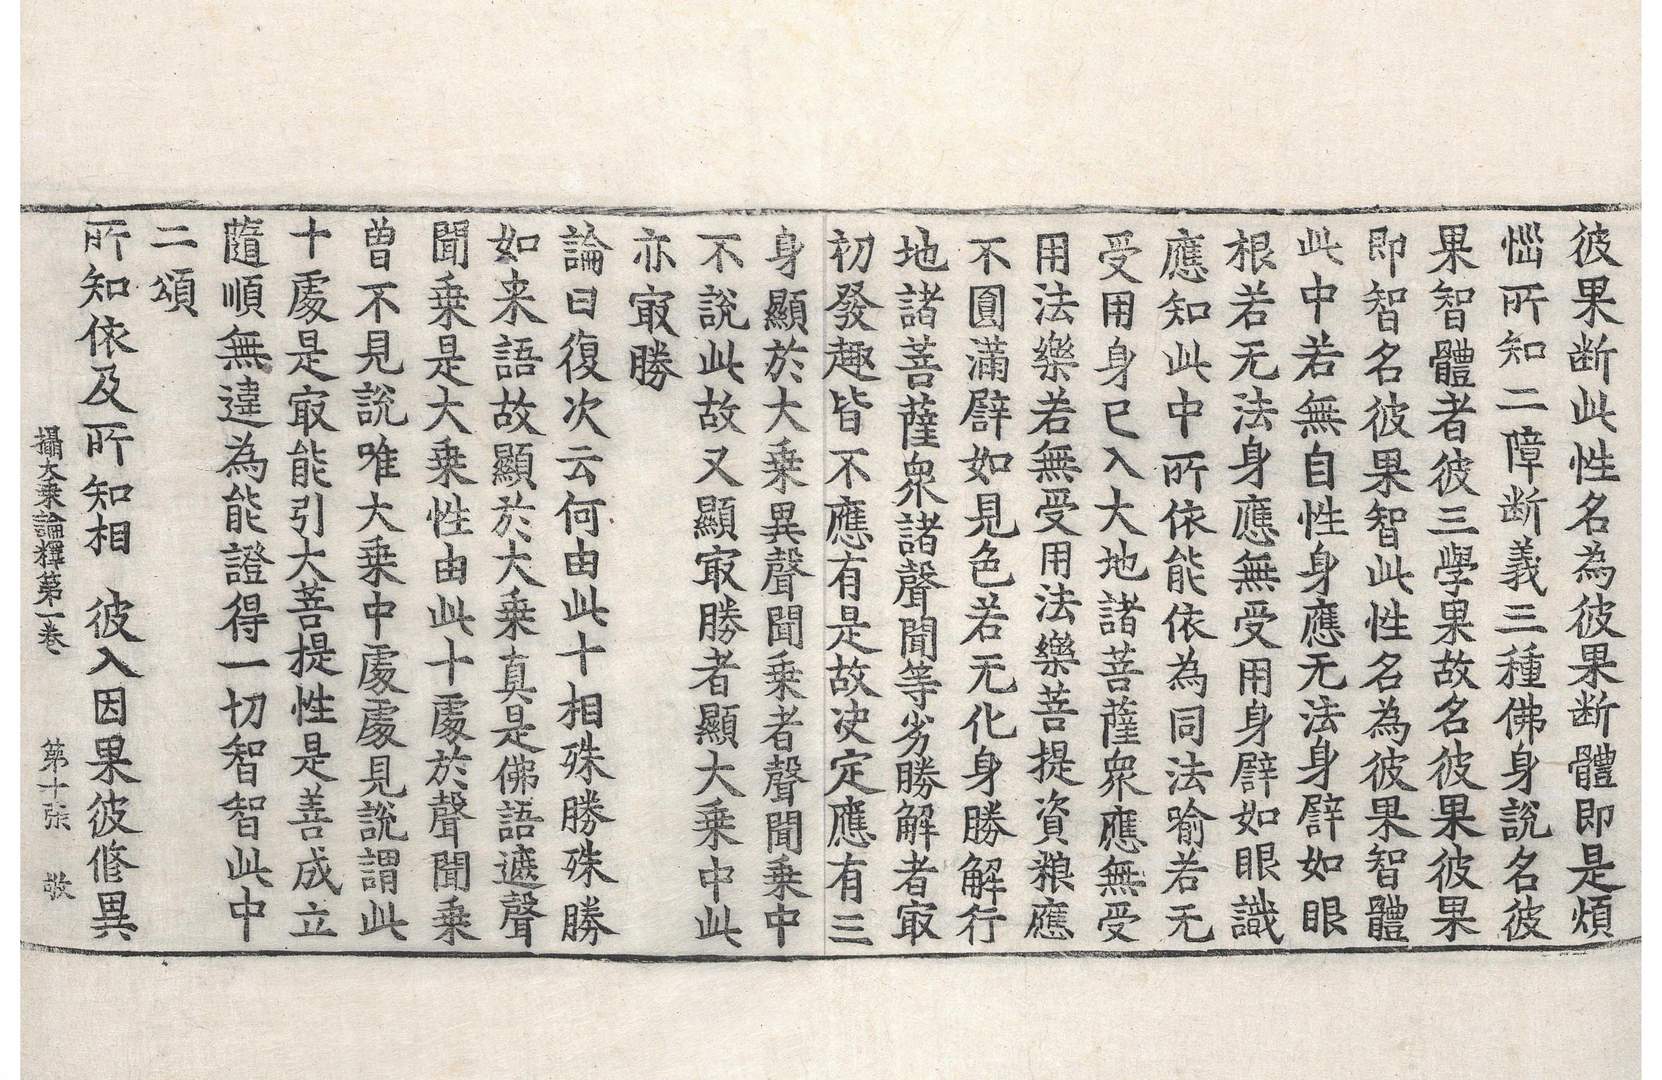 彼果断此性名為彼果断體即是煩
惱所知二障断義三種佛身說名彼
果智體者彼三學果故名彼果彼果
即智名彼果智此性名為彼果智體
此中若無自性身應无法身譬如眼
根若无法身應無受用身譬如眼識
應知此中所依能依為同法喻若无
受用身已入大地諸菩薩衆應無受
用法樂若無受用法樂菩提資粮應
不圓滿譬如見色若无化身勝解行
地諸菩薩衆諸聲聞等劣勝解者㝡
初發趣皆不應有是故决定應有三
身顯於大乗異聲聞乗者聲聞乗中
不說此故又顯㝡勝者顯大乗中此
亦㝡勝
論曰復次云何由此十相殊勝殊勝
如来語故顯於大乗真是佛語遮聲
聞乗是大乗性由此十處於聲聞乗
曾不見說唯大乗中處處見說謂此
十處是㝡能引大菩提性是善成立
隨順無違為能證得一切智智此中
二頌
所知依及所知相 彼入因果彼脩異
攝大乗論釋第一卷 第十張 敬